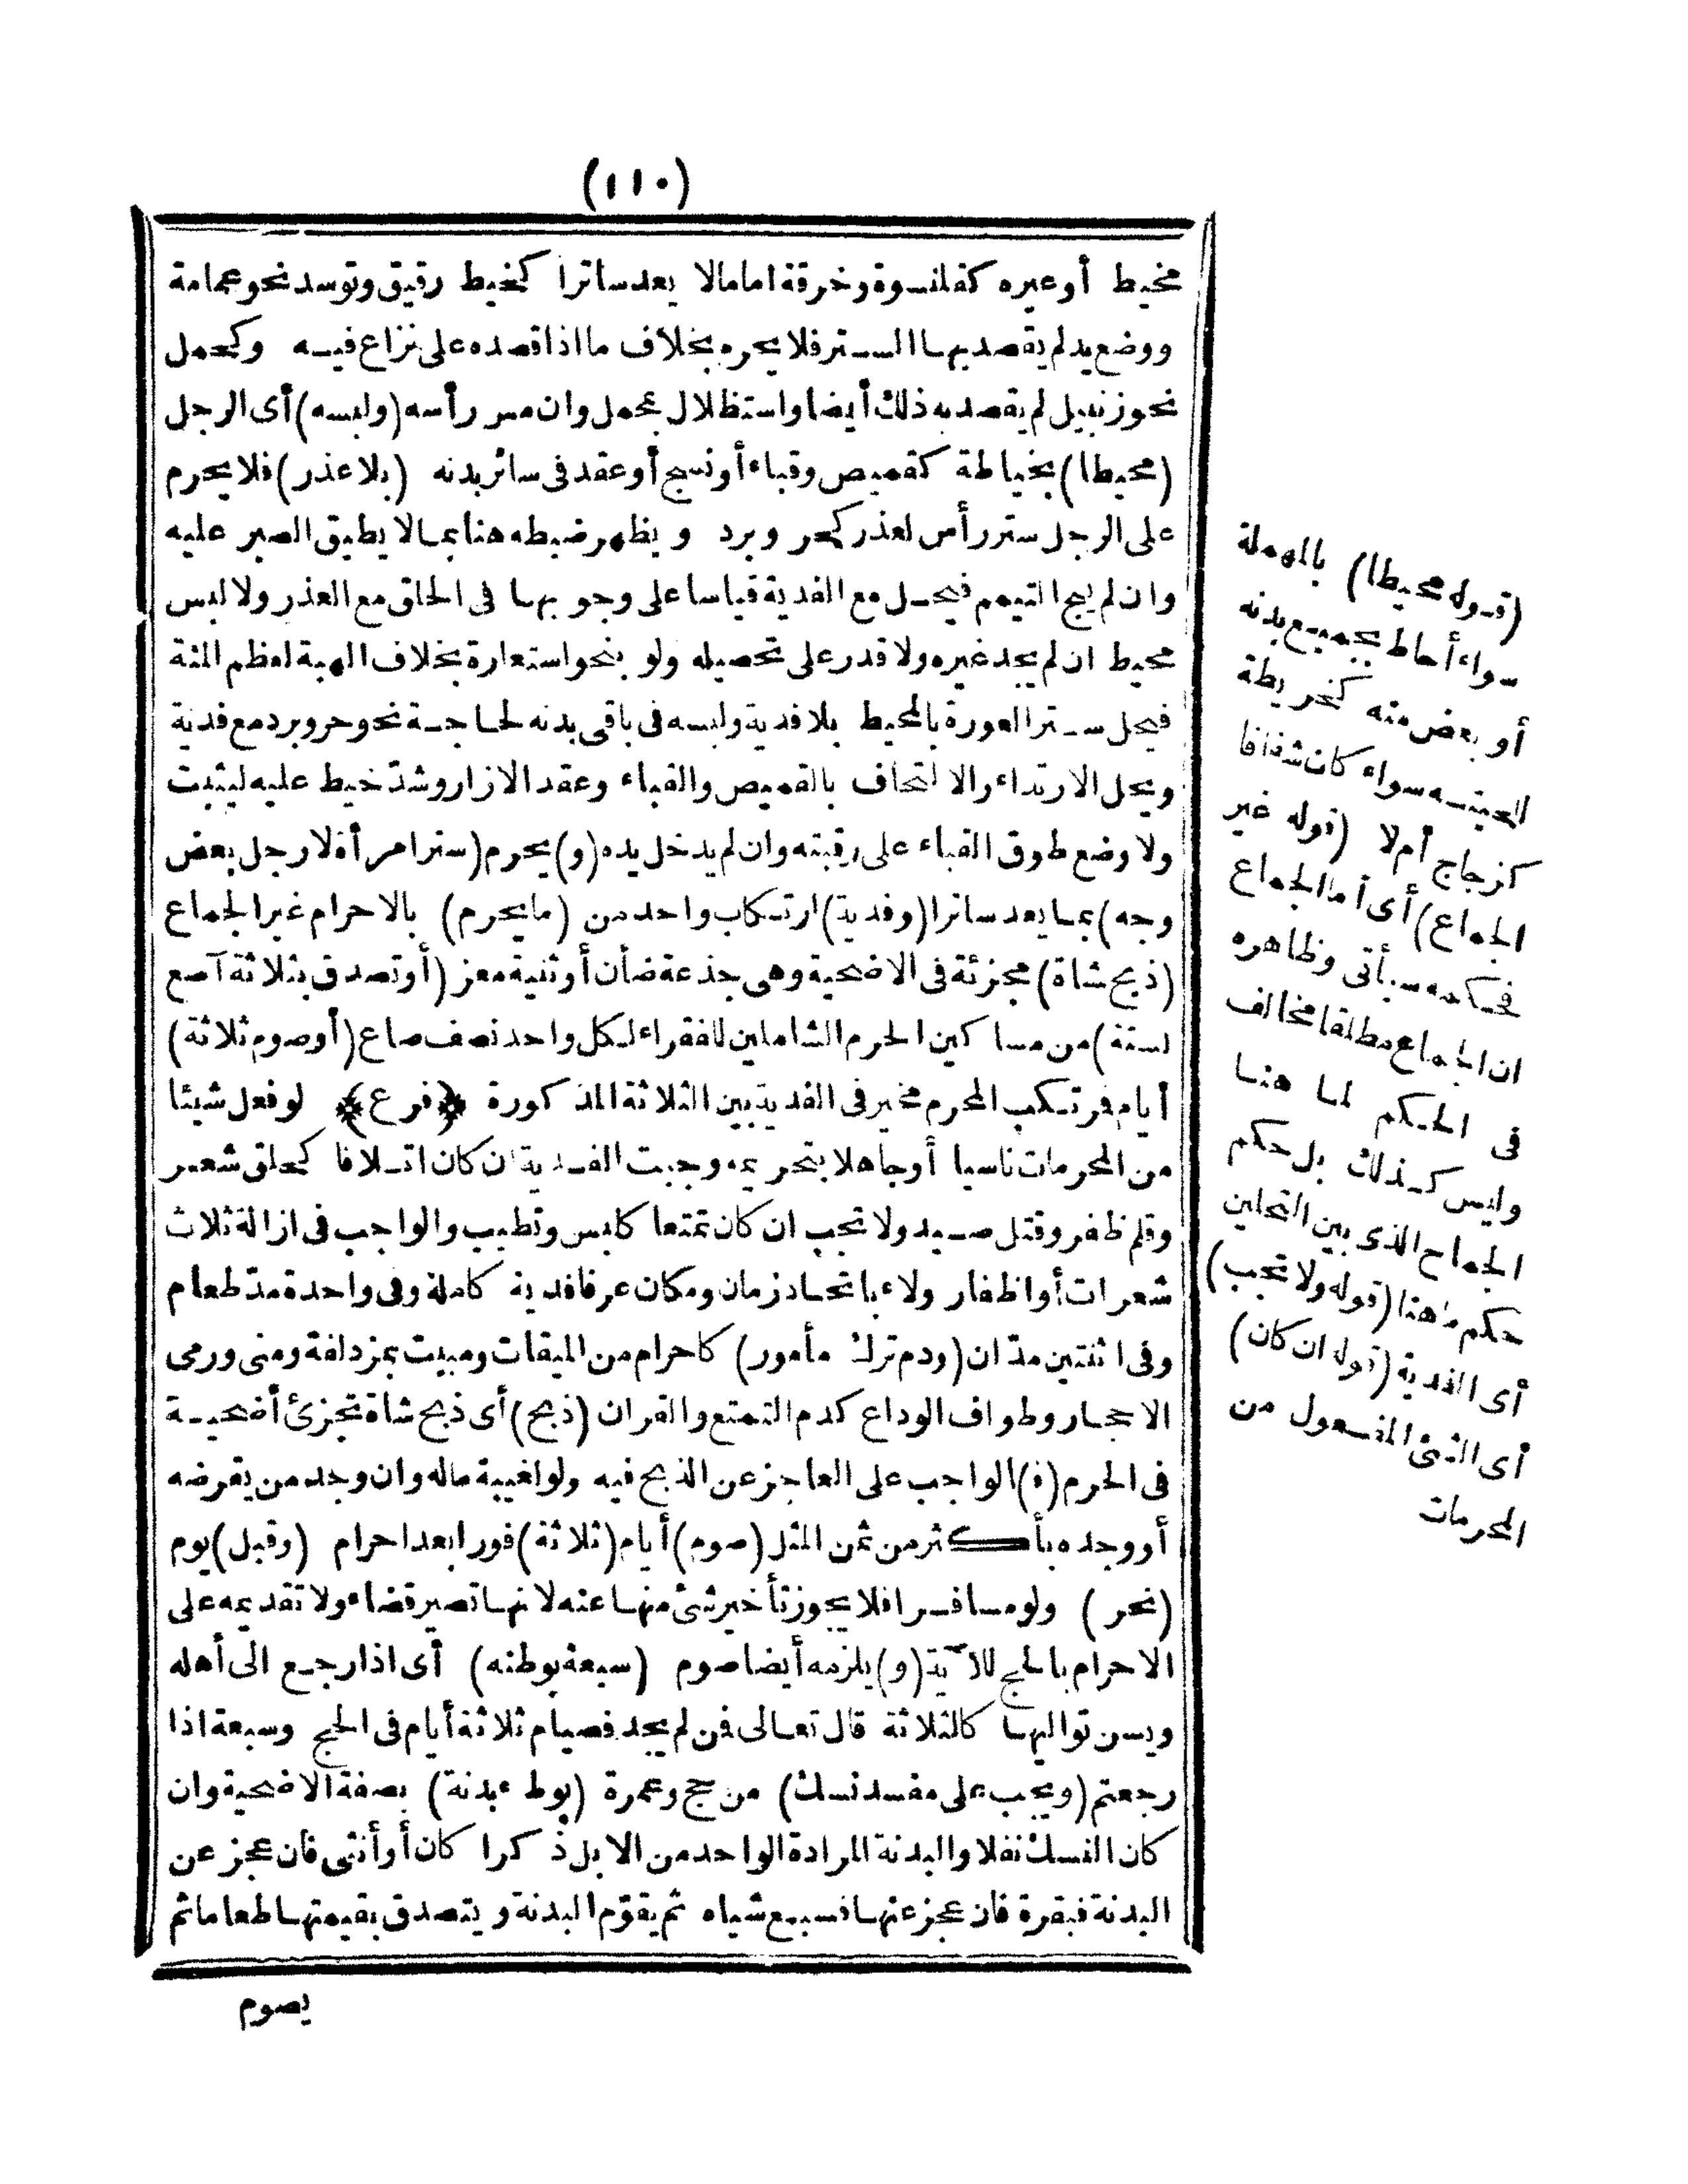 (١١٠)
مخيط أو غيره كقلنسوة وخرقة اما مالا يعد ساترا كخيط رقيق وتوسد نحو عمامة
ووضع يد لم يقصد بها الستر فلا يحرم بخلاف ما اذا قصده على نزاع فيه وكحمل
نحو زنبيل لم يقصد به ذلك أيضا واستظلال بمحمل وان مس رأسه (ولبسه) أى الرجل
(محيطا) بخياطة كقميص وقباء أو نسج أو عقد فى سائر بدنه (بلا عذر) فلا يحرم
على الرجل ستر رأس لعذر كحر وبرد ويظهر ضبطه هنا بما لا يطيق الصبر عليه
وان لم يبح التيمم فيحل مع الفدية قياسا على وجوبها فى الحلق مع العذر ولا لبس
محيط ان لم يجد غيره ولا قدر على تحصيله ولو بنحو استعارة بخلاف الهبة لعظم المنة
فيحل ستر العورة بالمحيط بلا فدية ولبسه فى باقى بدنه لحاجة نحو حر وبرد مع فدية
ويحل الارتداء والالتحاف بالقميص والقباء وعقد الازار وشدّ خيط عليه ليثبت
ولا وضع طوق القباء على رقبته وان لم يدخل يده (و) يحرم (ستر امرأة لا رجل بعض
وجه) بما يعد ساترا (وفدية) ارتكاب واحد من (ما يحرم) بالاحرام غير الجماع
(ذبح شاة) مجزئة فى الاضحية وهى جذعة ضأن أو ثنية معز (أو تصدق بثلاثة آصع
لستة) من مساكين الحرم الشاملين للفقراء لكل واحد نصف صاع (أو صوم ثلاثة)
أيام فمرتكب المحرم مخير فى الفدية بين الثلاثة المذكورة ﴿فرع﴾ لو فعل شيئا
من المحرمات ناسيا أو جاهلا بتحريمه وجبت الفدية ان كان اتلافا كحلق شعر
وقلم ظفر وقتل صيد ولا تجب ان كان تمتعا كلبس وتطيب والواجب فى ازالة ثلاث
شعرات أو اظفار ولاء باتحاد زمان ومكان عرفا فدية كاملة وفى واحدة مدّ طعام
وفى اثنتين مدّان (ودم ترك مأمور) كاحرام من الميقات ومبيت بمزدلفة ومنى ورمى
الاحجار وطواف الوداع كدم التمتع والقران (ذبح) أى ذبح شاة تجزئ أضحية
فى الحرم (ف) الواجب على العاجز عن الذبح فيه ولو لغيبة ماله وان وجد من يقرضه
أو وجده بأكثر من ثمن المثل (صوم) أيام (ثلاثة) فورا بعد احرام (وقبل) يوم
(نحر) ولو مسافرا فلا يجوز تأخير شئ منها عنه لانها تصير قضاء ولا تقديمه على
الاحرام بالحج للآية (و) يلزمه أيضا صوم (سبعة بوطنه) أى اذا رجع الى أهله
ويسن تواليها كالثلاثة قال تعالى فمن لم يجد فصيام ثلاثة أيام فى الحج وسبعة اذا
رجعتم (ويجب على مفسد نسك) من حج وعمرة (بوطء بدنة) بصفة الاضحية وان
كان النسك نفلا والبدنة المرادة الواحد من الابل ذكرا كان أو أنثى فان عجز عن
البدنة فبقرة فان عجز عنها فسبع شياه ثم يقوّم البدنة ويتصدق بقيمتها طعاما ثم
يصوم
(قوله محيطا) بالمهملة
سواء أحاط بجميع بدنه
أو بعض منه كخريطة
للحيته سواء كان شفافا
كزجاج أم لا (قوله غير
الجماع) أى أما الجماع
فحكمه سيأتى وظاهره
ان الجماع مطلقا مخالف
فى الحكم لما هنا
وليس كذلك بل حكم
الجماع الذى بين التحللين
حكم ما هنا (قوله ولا تجب)
أى الفدية (قوله ان كان)
أى الشئ المفعول من
المحرمات